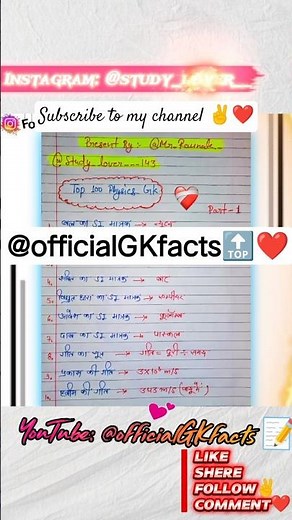 INSTAGRAM: @STUDY_LOVER_
Fo Subscribe to my channel ✌️❤️
Present By : @Mr. Raunak
@Study_lover__143
Top 100 Physics GK
Part - 1
बल का SI मात्रक → न्यूटन
@officialGKfacts🔝❤️
4. शक्ति का SI मात्रक → वाट
5. विद्युत धारा का SI मात्रक → एम्पीयर
6. आवेश का SI मात्रक → कूलॉम्ब
7. दाब का SI मात्रक → पास्कल
8. गति का सूत्र → गति = दूरी ÷ समय
9. प्रकाश की गति → 3×10⁸ m/s
10. ध्वनि की गति → 343 m/s (वायु में)
YouTube: @officialGKfacts 📝
LIKE
SHERE
FOLLOW✌️
COMMENT❤️